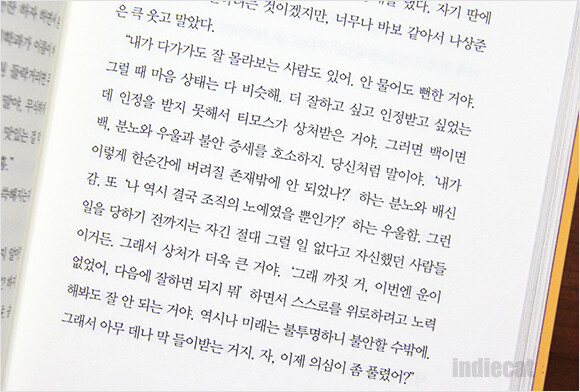 있었다. 자기 딴에
것이겠지만, 너무나 바보 같아서 나상준
은 크게 웃고 말았다.
“내가 다가가도 잘 몰라보는 사람도 있어. 안 물어도 뻔한 거야.
그럴 때 마음 상태는 다 비슷해. 더 잘하고 싶고 인정받고 싶었는
데 인정을 받지 못해서 티모스가 상처받은 거야. 그러면 백이면
백, 분노와 우울과 불안 증세를 호소하지. 당신처럼 말이야. ‘내가
이렇게 한순간에 버려질 존재밖에 안 되었나?’ 하는 분노와 배신
감. 또 ‘나 역시 결국 조직의 노예였을 뿐인가?’ 하는 우울함. 그런
일을 당하기 전까지는 자긴 절대 그럴 일 없다고 자신했던 사람들
이거든. 그래서 상처가 더욱 큰 거야. ‘그래 까짓 거, 이번엔 운이
없었어, 다음에 잘하면 되지 뭐’ 하면서 스스로를 위로하려고 노력
해봐도 잘 안 되는 거야. 역시나 미래는 불투명하니 불안할 수밖에.
그래서 아무 데나 막 들이받는 거지. 자, 이제 의심이 좀 풀렸어?”
indiecat